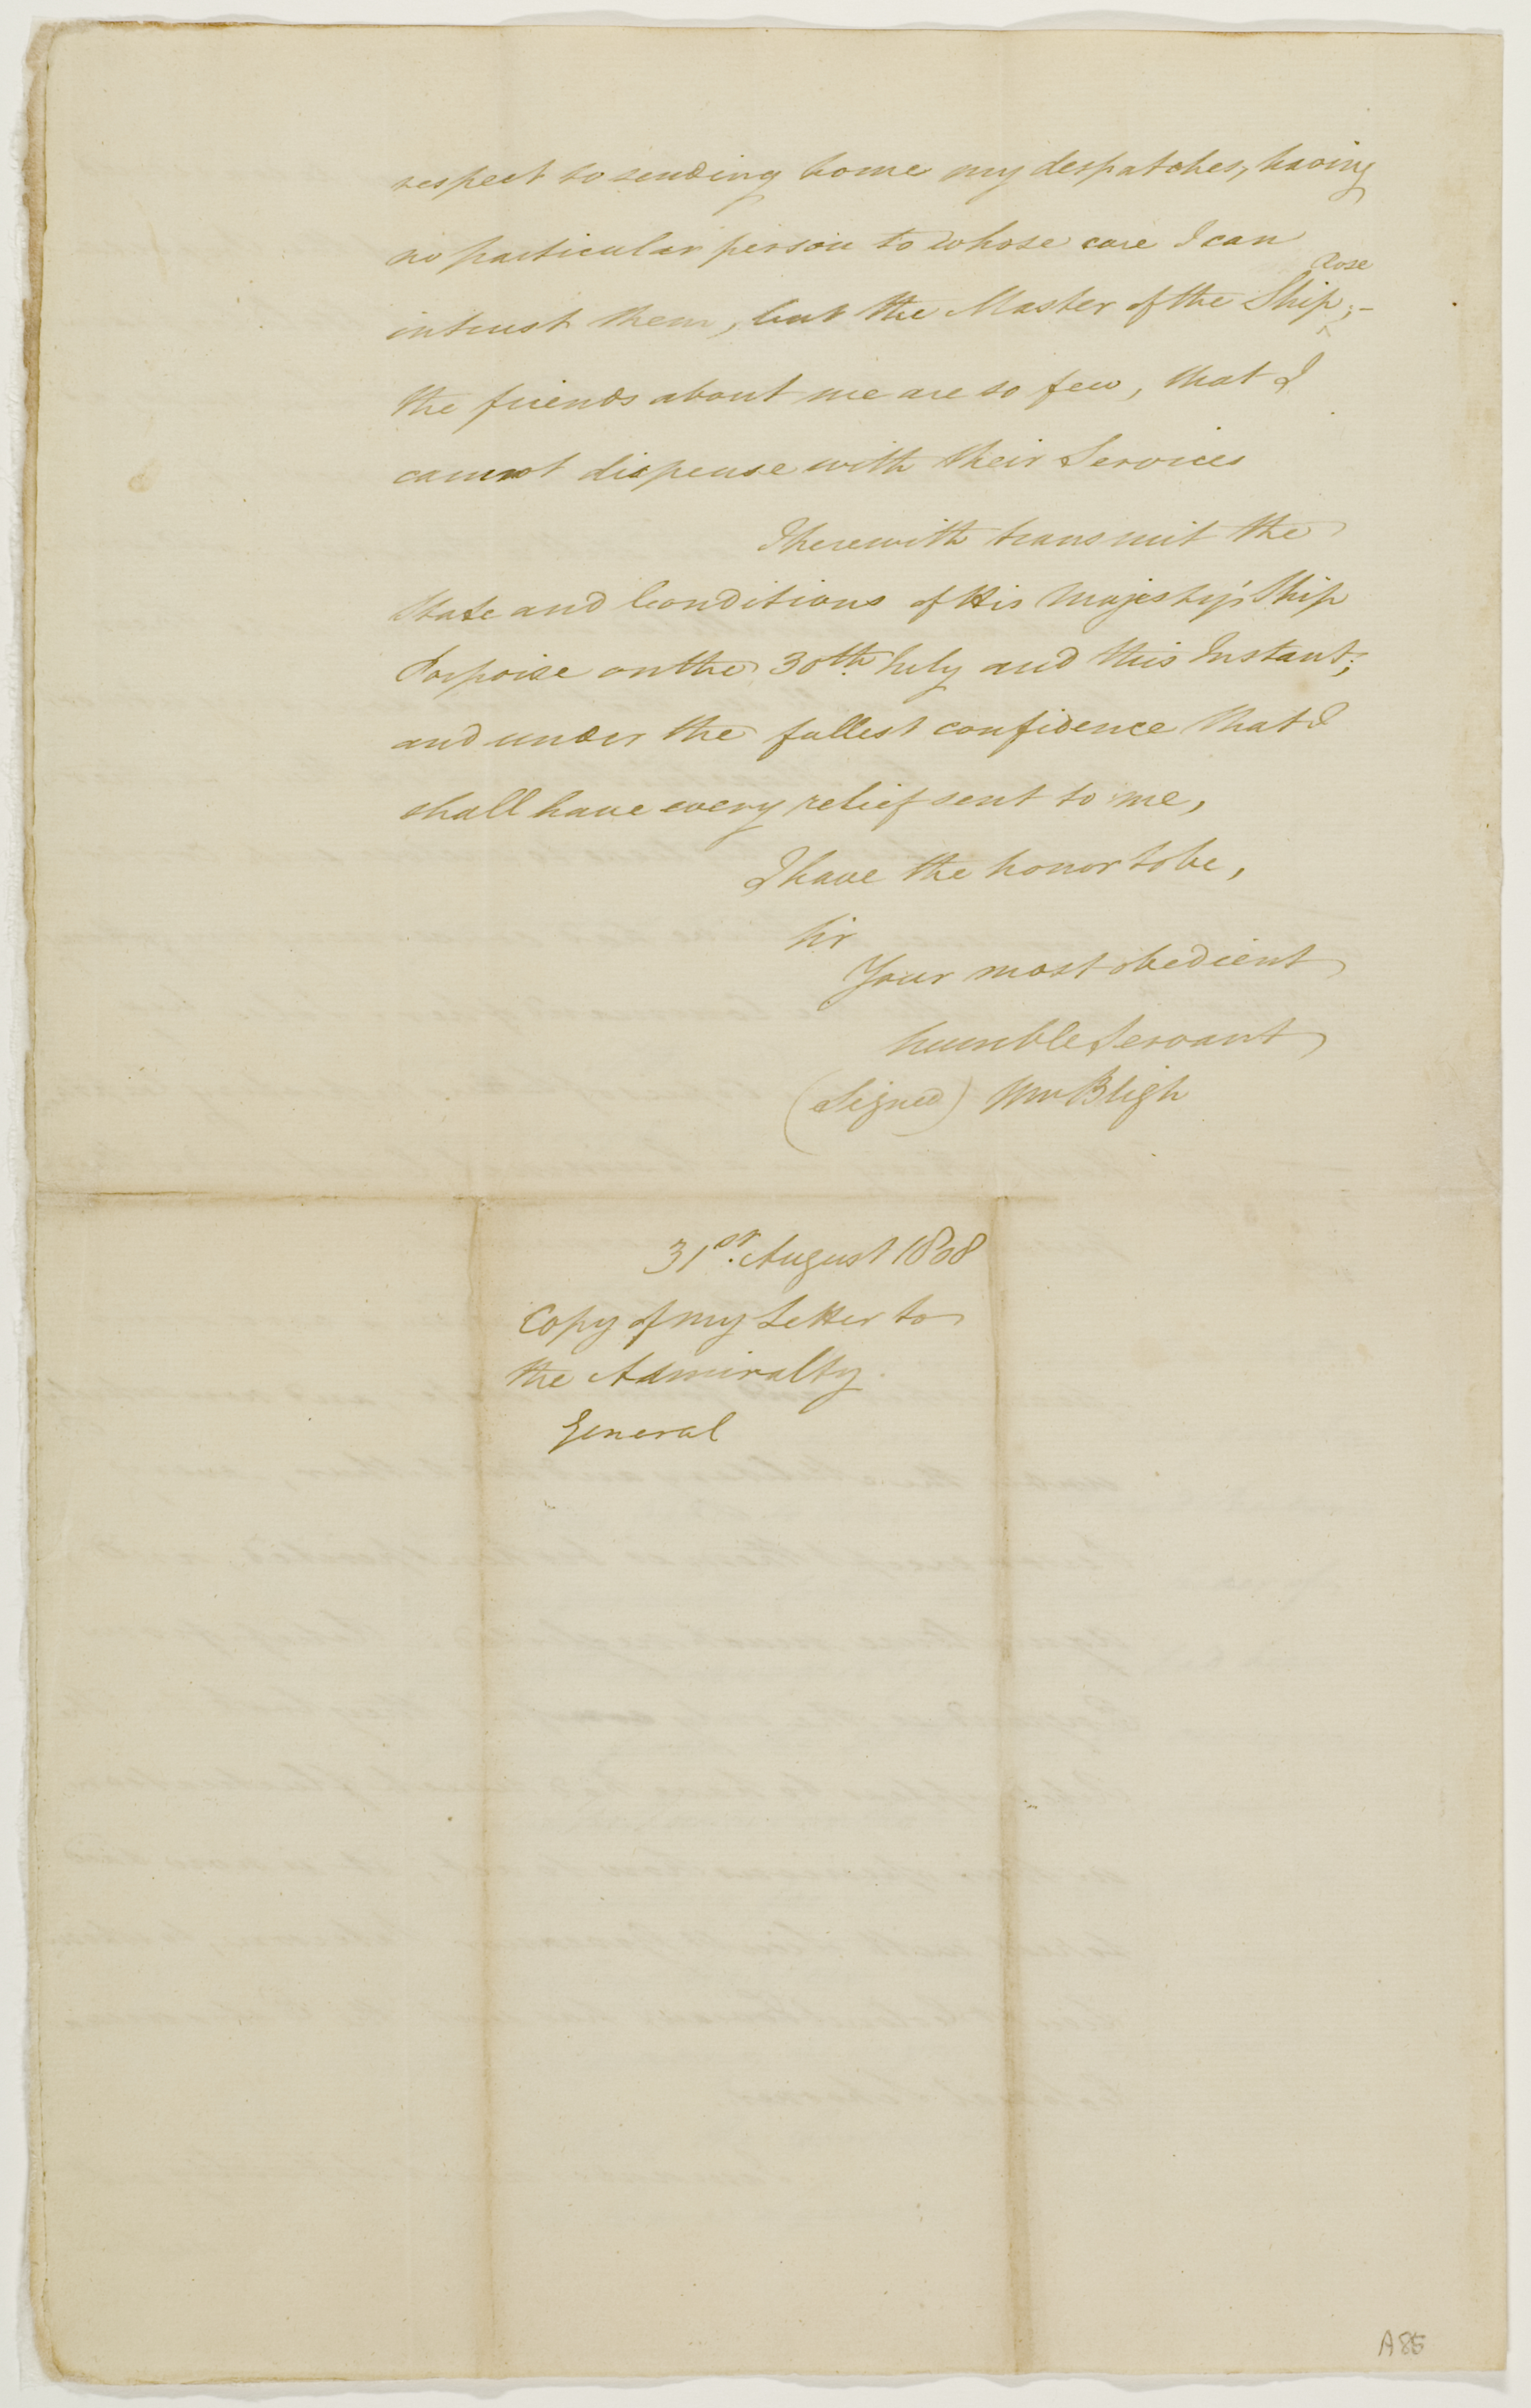 respect to sending home my despatches, having
no particular person to whose care I can
intrust them, but the Master of the Ship Rose;-
the friends about me are so few, that I
cannot dispense with their Services
I herewith transmit the
State and Conditions of His Majesty's Ship
Porpoise on the 30th. July and this Instant;
and under the fullest confidence that I
shall have every relief sent to me,
I have the honor to be,
Sir
Your most obedient
humble Servant
(Signed) Wm Bligh
31st. August 1808
Copy of my Letter to
the Admiralty.
General
A85